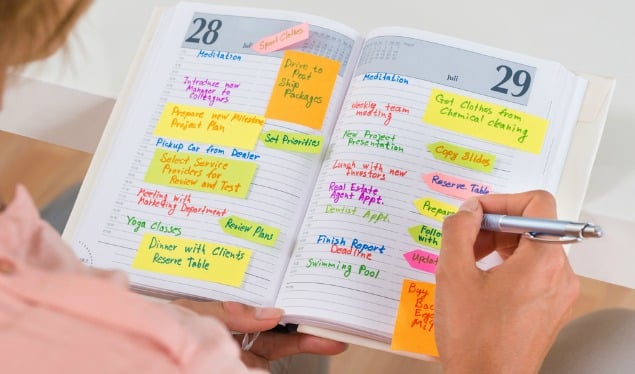 28
Juli
Sport Clothes
Meditation
Drive to
Post
Ship
Packages
Introduce new
Manager to
Colleagues
Prepare new Milestone
Project Plan
Set Priorities
Pickup Car from Dealer
Select Service
Providers for
Review and Test
Meeting with
Marketing Department
Yoga Classes
Review Plans
Dinner with Clients
Reserve Table
Juli
29
Meditation
Get Clothes from
Chemical cleaning
Weekly team
meeting
New Project
Presentation
Copy Slides
Lunch with new
investors
Reserve Table
Real Estate
Agent Appt.
Prepare
Dentist Appt.
Follow
with
Finish Report
Deadline
Updat
Swimming Pool
Buy
Bac
Egg
Mil